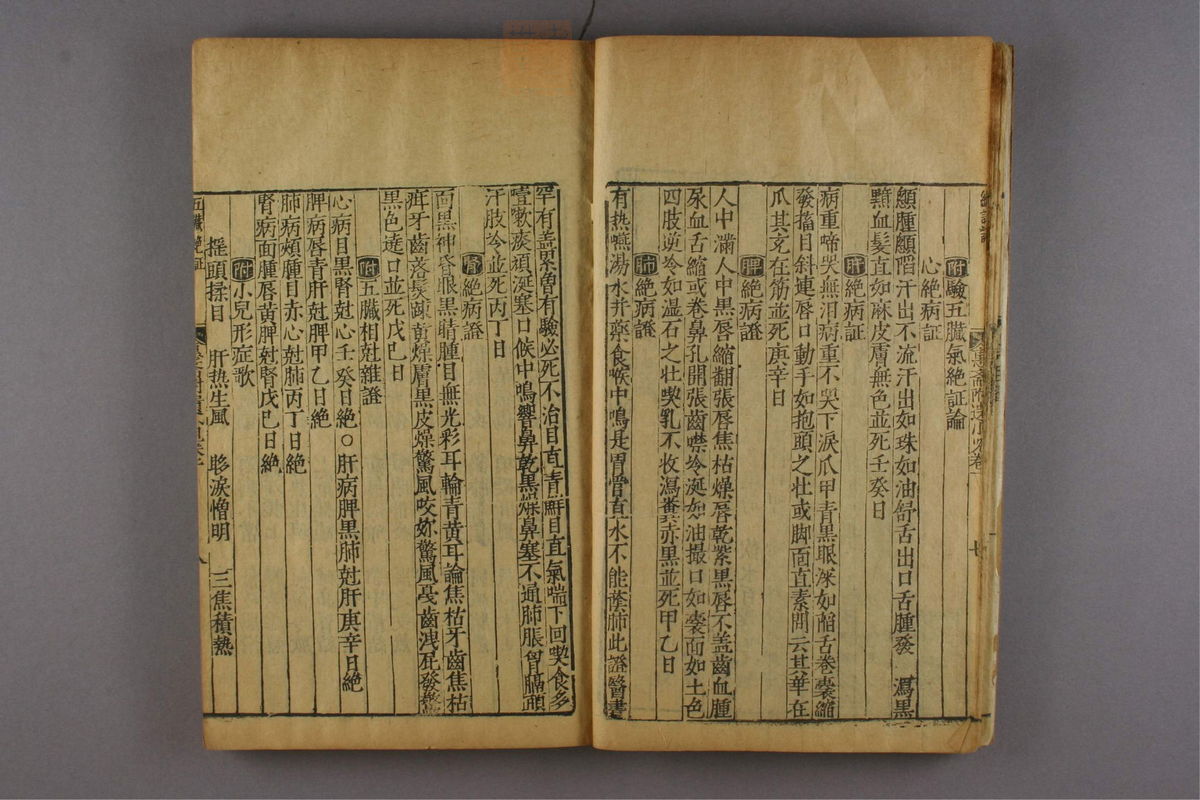 附驗五臟氣絕証論
心絕病証
顖腫顖陷汗出不流汗出如珠如油舒舌出口舌腫發 瀉黑
黯血髮直如麻皮膚無色並死壬癸日
肝絕病証
病重啼哭無泪病重不哭下淚爪甲青黑眼深如陷舌卷囊縮
發搐目斜連唇口動手如抱頭之壯或脚面直素問云其華在
爪其充在筋並死庚辛日
脾絕病證
人中滿人中黑唇縮翻張唇焦枯燥唇乾紫黑唇不盖齒血腫
尿血舌縮或卷鼻孔開張齒噤冷涎如油撮口如囊面如土色
四肢逆冷如湿石之壮喫乳不收瀉糞赤黑並死甲乙日
肺絕病證
有热嚥湯水并藥食喉中鳴是胃管直水不能蔭肺此證醫書
罕有盖累曾有驗必死不治目直青鮮目直氣喘下回喫食多
噎嗽痰頑涎塞口候中鳴響鼻乾黑燥鼻塞不通肺脹胷膈頑
汗肢冷並死丙丁日
腎絕病證
面黑神昏眼黑睛腫目無光彩耳輪青黃耳論焦枯牙齒焦枯
疳牙齒落髮踈黃燥膚黑皮燥驚風咬妳驚風戛齒洩屁發
黑色遶口並死戊巳日
附五臟相尅雜證
心病目黑腎尅心壬癸日絕○肝病脾黑肺尅肝庚辛日絕
脾病唇青肝尅脾甲乙日絕
肺病頰腫目赤心尅肺丙丁日絕
腎病面腫唇黃脾尅腎戊巳日絕
附小兒形症歌
揺頭揉目 肝热生風 眵淚憎明 三焦積熱
五臟絕証
八